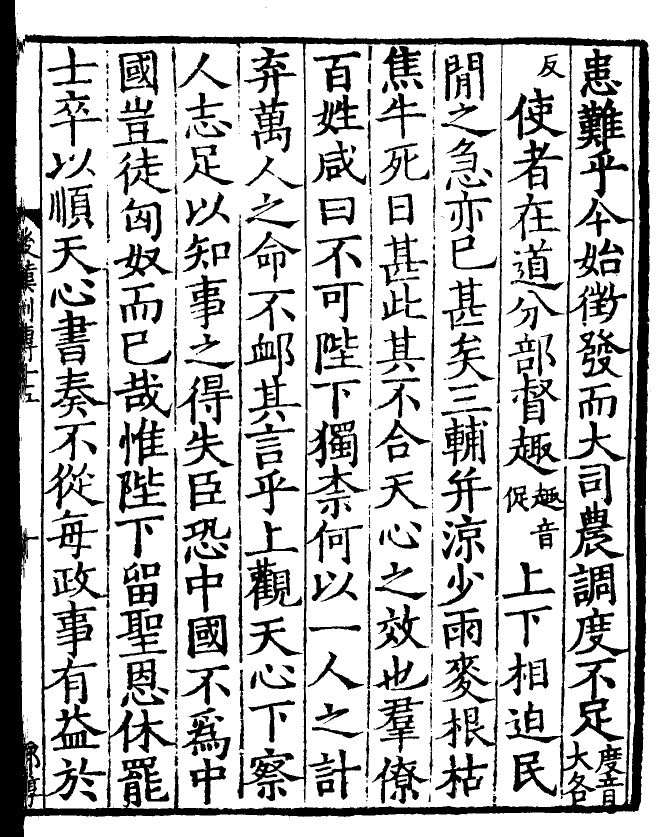 患難乎今始徵發而大司農調度不足度音大各
反使者在道分部督趣趣音促上下相迫民
閒之急亦已甚矣三輔并涼少雨麥根枯
焦牛死日甚此其不合天心之效也羣僚
百姓咸曰不可陛下獨柰何以一人之計
弃萬人之命不卹其言乎上觀天心下察
人志足以知事之得失臣恐中國不爲中
國豈徒匈奴而已哉惟陛下留聖恩休罷
士卒以順天心書奏不從每政事有益於
後漢列傳十五